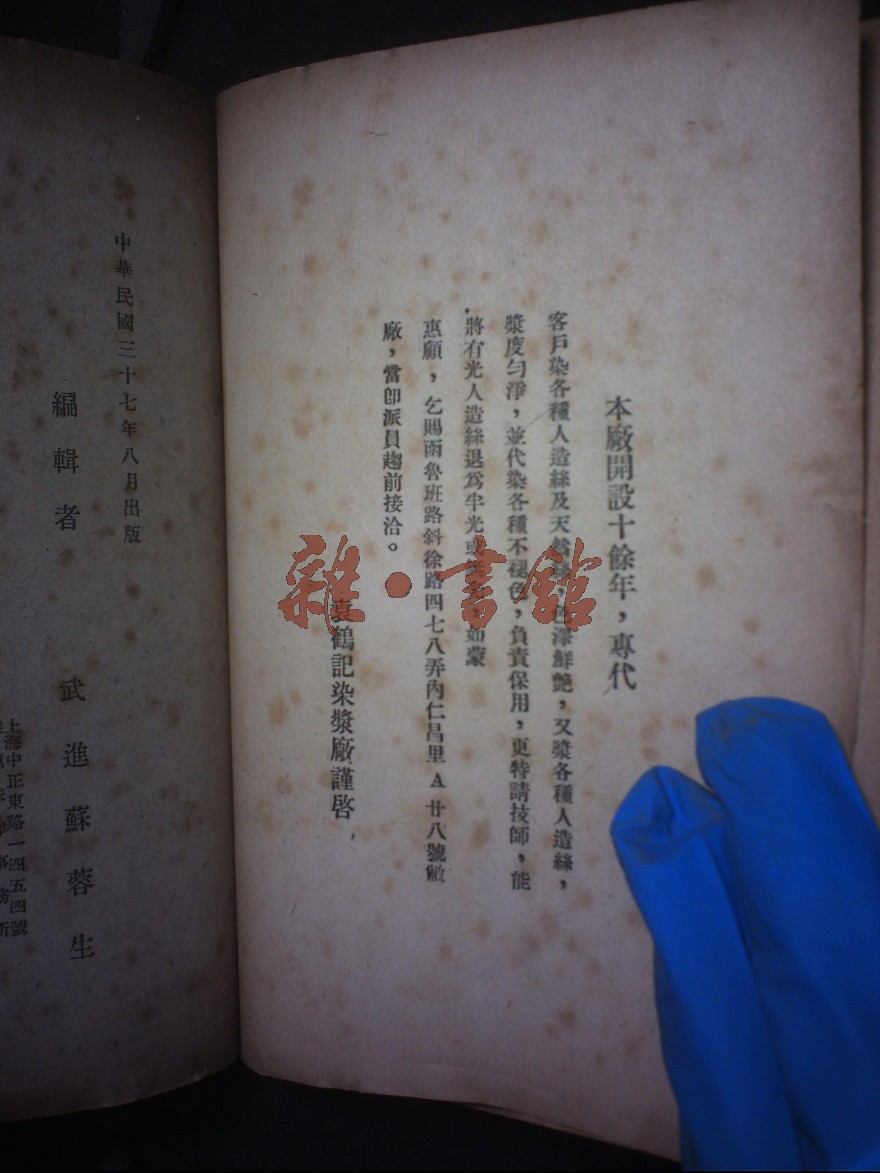 本廠開設十餘年，專代
客戶染各種人造絲及天然絲，色澤鮮艷，又漿各種人造絲，
漿度勻淨，並代染各種不褪色，負責保用，更特請技師，能
將有光人造絲退爲半光或無光，如蒙
惠顧，乞賜函魯班路斜徐路四七八弄內仁昌里A廿八號敝
廠，當卽派員趨前接洽。
鶴記染漿廠謹啓
中華民國三十七年八月出版
編輯者 武進蘇蓉生
上海中正東路一四五四號
雜·書館